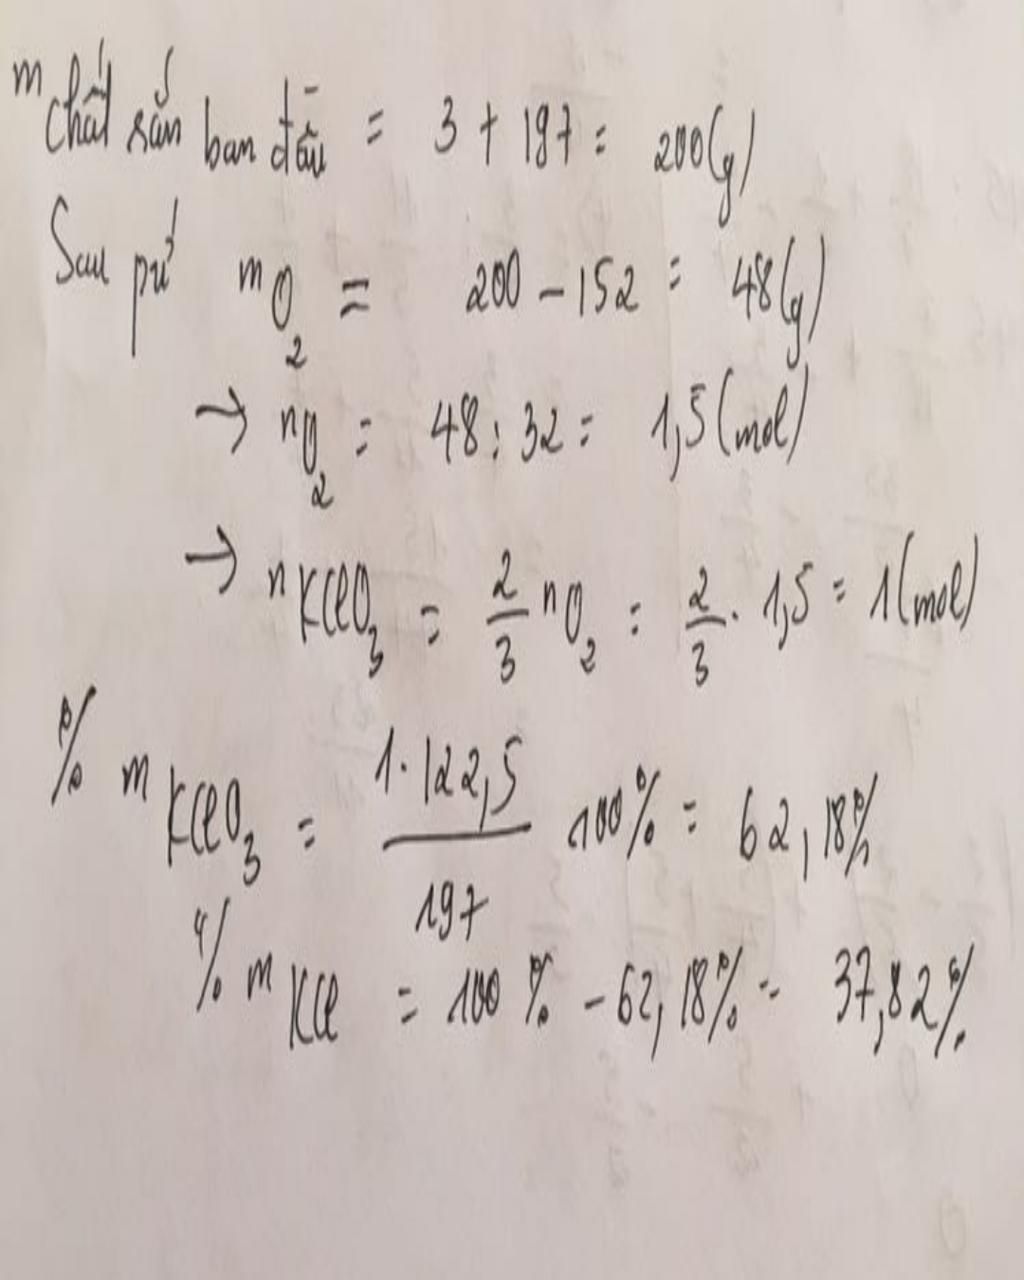 m chất rắn ban đầu = 3 + 197 = 200(g)
Sau pứ mO2 = 200 - 152 = 48(g)
→ nO2 = 48 : 32 = 1,5 (mol)
→ nKClO3 = 2/3 nO2 = 2/3 . 1,5 = 1 (mol)
% mKClO3 = 1.122,5/197 100% = 62,18%
% mKCl = 100% - 62,18% = 37,82%